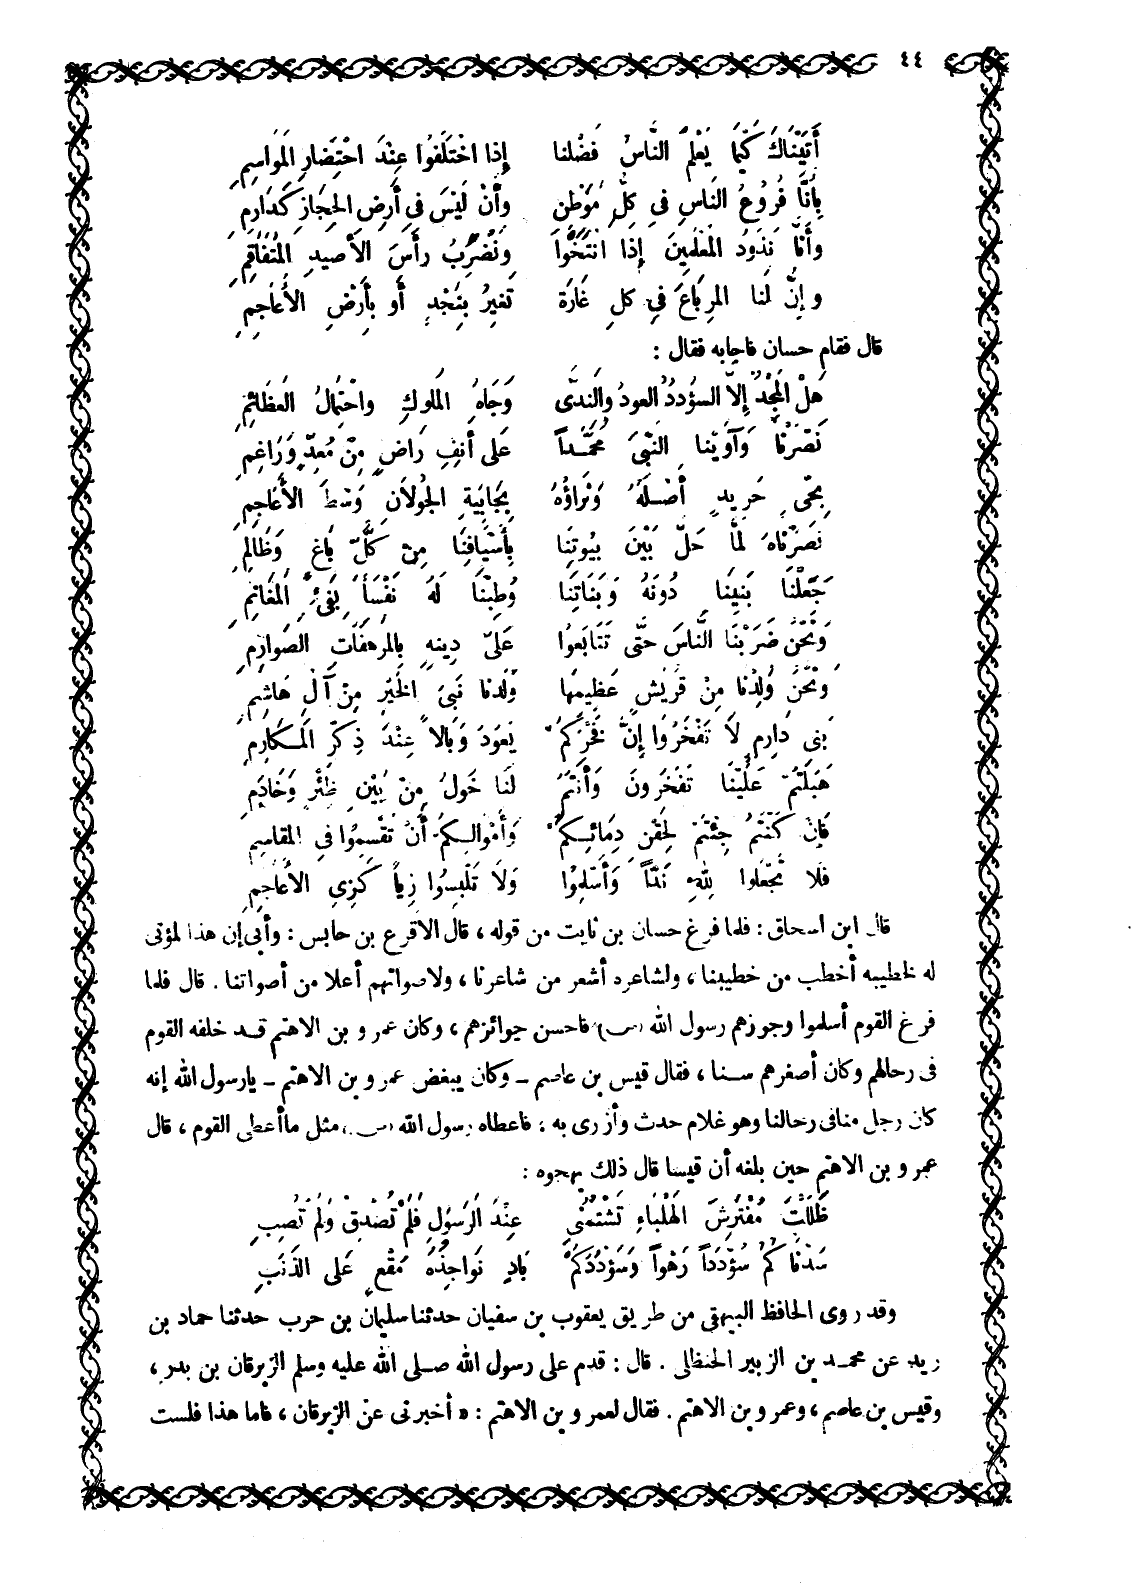 ٤٤
أَتَيْنَاكَ كَيْمَا يَعْلَمَ النَّاسُ فَضْلنا إِذا اخْتَلَفُوا عِنْدَ احْتِضَارِ المَوَاسِمِ
بِأنَّا فُرُوعُ النَاسِ فِي كلِّ مُوَْطِن وأَنْ لَيْسَ فِي أَرضِ الحِجَازِ كَدَارِمِ
وأَنَّا نَذُودُ المعْلمِينَ إِذَا انْتَخَوْا وَنَضْرِبُ رأسَ الأصيدِ المُتفَاقِمِ
وإِنَّ لَنا المِرباعَ فِي كل غَارَة تغيرُ بنَجْدٍ أَو بأَرْضِ الأَعاجِمِ
قال فقام حسان فاجابه فقال :
هَلْ المَجْدُ إِلاَّ السؤددُ العودُ والنَدَى وَجَاهُ المُلوكِ واحْتِمالُ العَظَائِمِ
نَصَرْنَا وَآوَيْنا النَّبِيَ مُحَمَّداً عَلى أَنفِ رَاضٍ مِنْ مَعدّ وَرَاغِمِ
بِحَيّ حَرِيدٍ أَصْلهُ وَثَراؤُهُ بِجَابِيَةِ الجُولاَن وَسْطَ الأَعَاجِمِ
نَصَرْنَاهُ لمَّا حَلّ بَيْنَ بيُوتنَا بِأَسْيَافِنَا مِنْ كلّ بَاغٍ وَظَالِمِ
جَعَلْنَا بَنِينَا دُونَهُ وَبَنَاتِنَا وَطِبْنَا لَهُ نَفْسَاً بفَيءِ المَغَانمِ
وَنَحْنُ ضَرَبْنَا النَّاسَ حَتَّى تَتَابَعُوا عَلَى دِينِهِ بِالمُرهَفَاتِ الصَوارِمِ
وَنَحْنُ وَلَدْنا مِنْ قُرَيْشٍ عَظِيمَهَا وَلَدنا نَبيَ الخَيْرِ مِنْ آلِ هَاشِمِ
بَنِى دَارِم لاَ تَفْخَرُوا إنَّ فَخْرَكُمْ يَعودُ وَبَالاً عِنْدَ ذِكْرِ المَكَارِمِ
هَبلتُمْ عَلَيْنَا تَفْخَرُونَ وَأَنتُمُ لَنا خَوَلُ مِنْ بَيْنِ ظِئْرٍ وَخَادِمِ
فَإِنْ كُنْتُمُ جِئْتمْ لِحَقْنِ دِمَائِكُمُ وَأَمْوالِكُمْ أَنْ تقْسِمُوا فِي المَقَاسِمِ
فَلا تَجْعَلوا للهِ نِدّاً وَأَسْلِمُوا وَلاَ تَلْبِسُوا زِياً كَزِيِ الأَعَاجِمِ
قال ابن اسحاق : فلما فرغ حسان بن ثابت من قوله ، قال الاقرع بن حابس : وأبى إن هذا لمؤتى
له لخطيبه أخطب من خطيبنا ، ولشاعره أشعر من شاعرنا ، ولاصواتهم أعلا من أصواتنا . قال فلما
فرغ القوم أسلموا وجوزهم رسول الله (س) فاحسن جوائزهم ، وكان عمرو بن الاهتم قد خلفه القوم
فى رحالهم وكان أصغرهم سنا ، فقال قيس بن عاصم ــ وكان يبغض عمرو بن الاهتم ــ يارسول الله إنه
كان رجل منا فى رحالنا وهو غلام حدث وأزرى به : فاعطاه رسول الله (س) مثل ما أعطى القوم ، قال
عمرو بن الاهتم حين بلغه أن قيسا قال ذلك يهجوه :
ظَلَلْتَ مُفْتَرِشَ الهَلْبَاءِ تَشْتمُنِي عِنْدَ الرَسُولِ فَلَمْ تُصَدِقْ وَلَمْ تُصِبِ
سَدْنَا كُمْ سُؤْدَداً رَهْواً وَسُؤْدَدُكُمْ بَادٍ نَوَاجِذُهُ مُقْعٍ عَلى الذَنَبِ
وقد روى الحافظ البيهقى من طريق يعقوب بن سفيان حدثنا سليمان بن حرب حدثنا حماد بن
زيد عن محمد بن الزبير الحنظلى . قال : قدم على رسول الله صلى الله عليه وسلم الزبرقان بن بدر ،
وقيس بن عاصم ، وعمرو بن الاهتم . فقال لعمرو بن الاهتم : « أخبرنى عن الزبرقان ، فاما هذا فلست